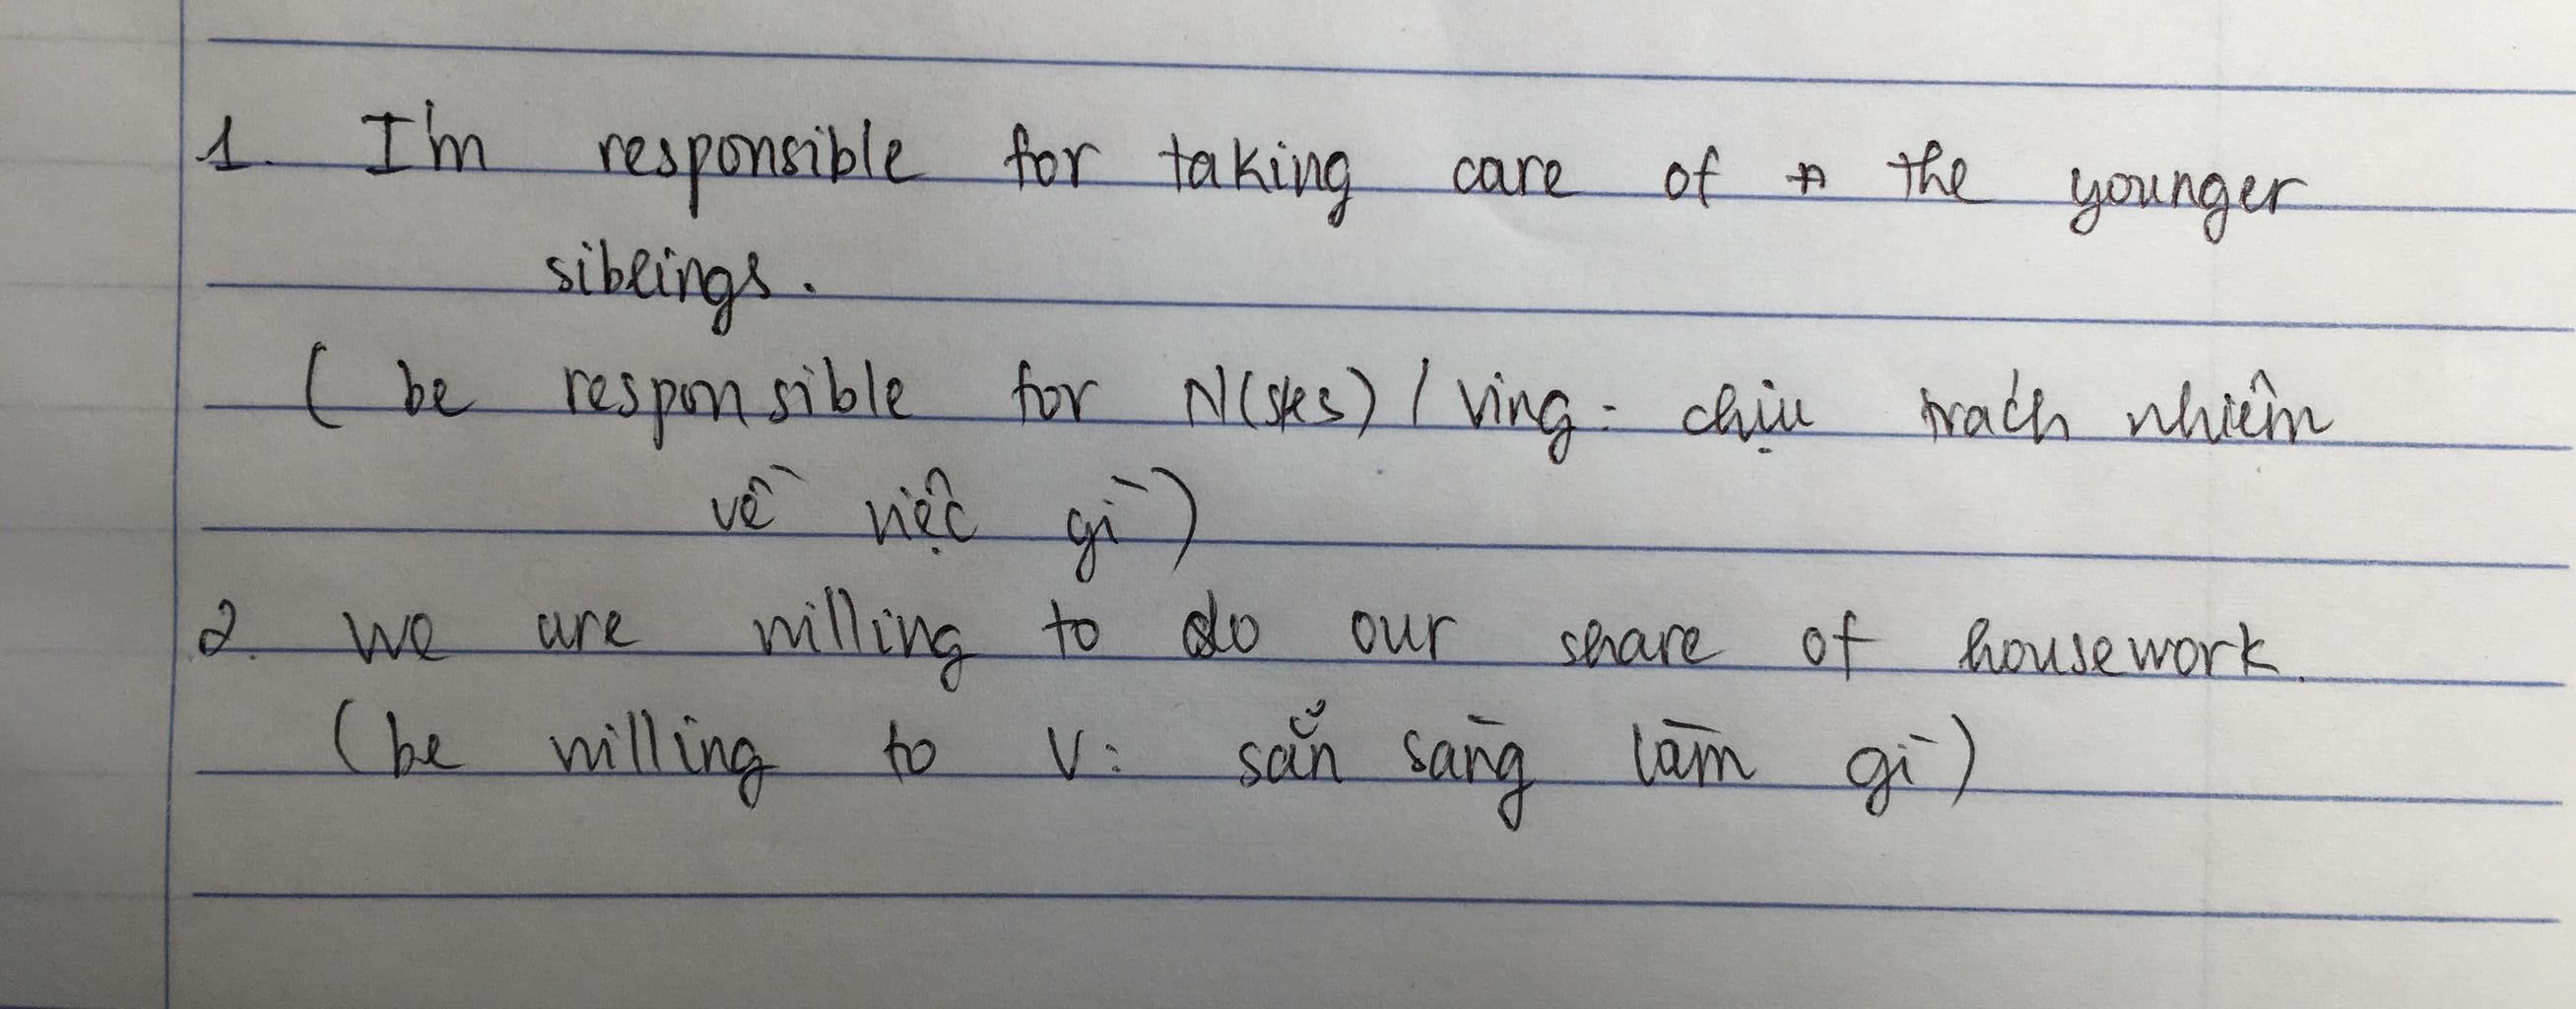 1. I'm responsible for taking care of the younger
siblings.
( be responsible for N(sks) / Ving : chịu trách nhiêm
về việc gì )
2. We are willing to do our share of housework.
( be willing to V : sẵn sàng làm gì )